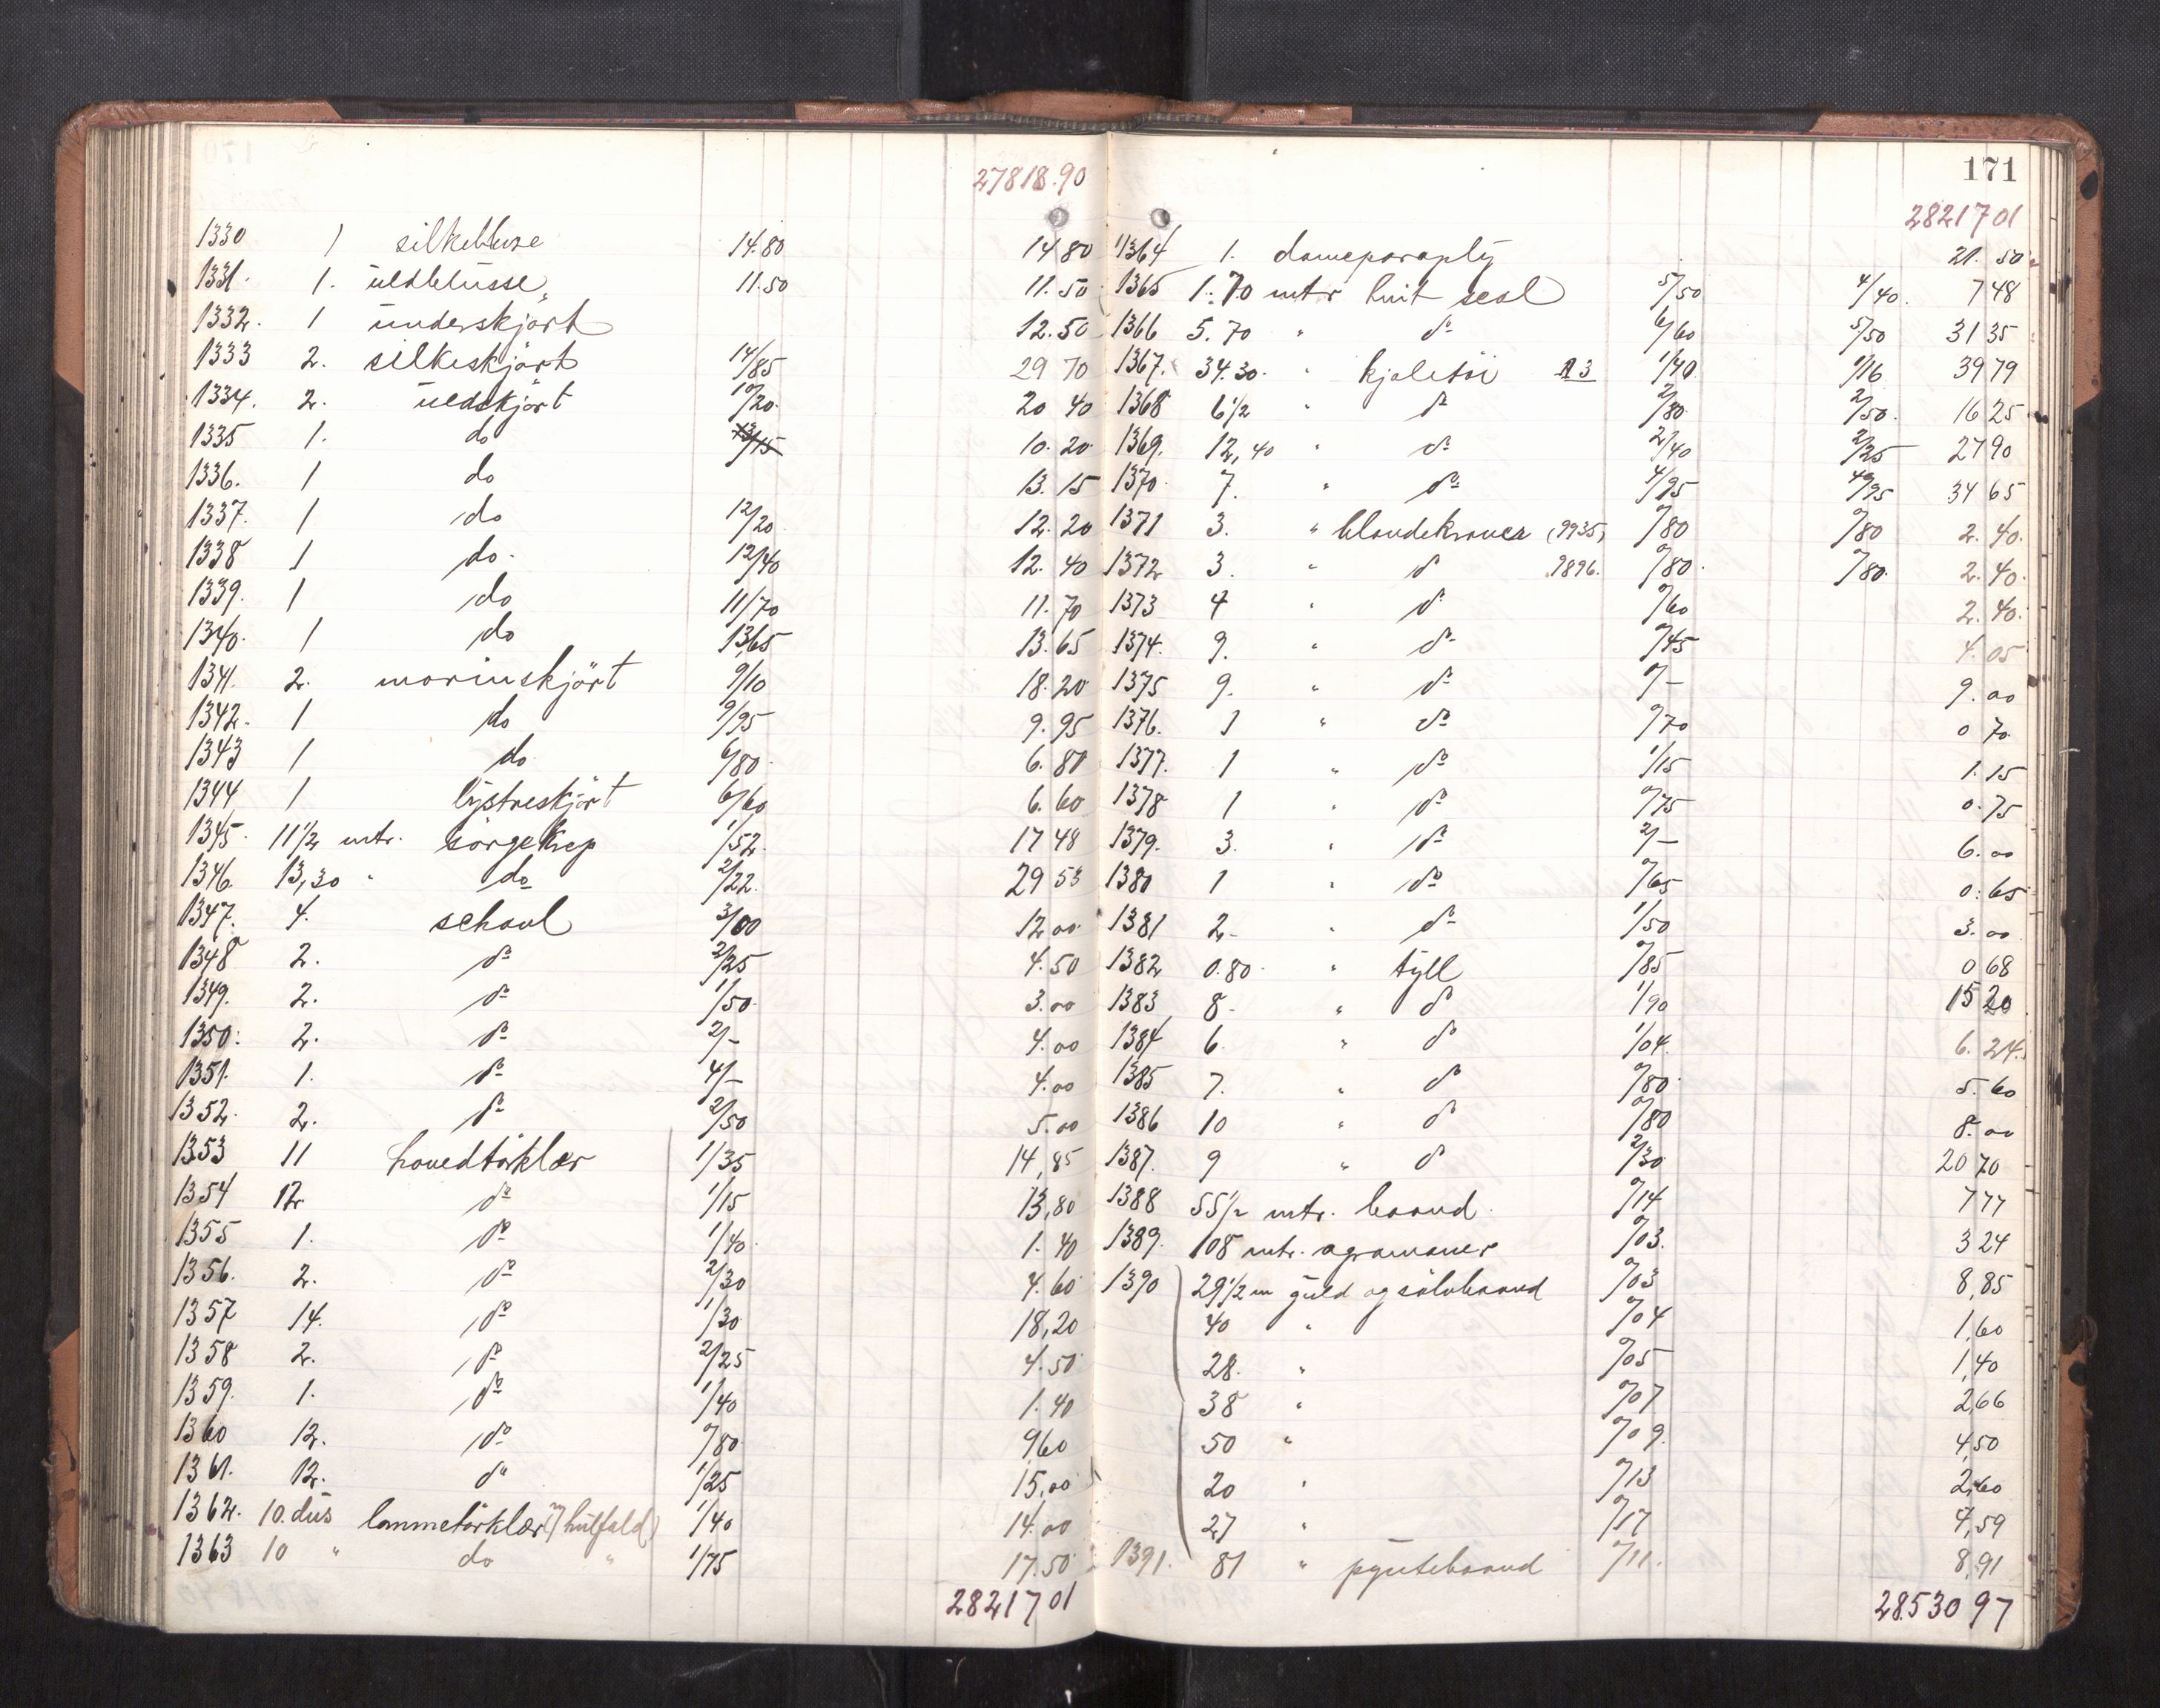 27818.90
1330 1 silkebluse 14.80 14 80
1331. 1. uldblusse 11.50 11.50
1332. 1 underskjört 12.50
1333 2. silkeskjört 14/85 29 70
1334. 2. uldskjört 10/20 20 40
1335 1. do 10.20
1336. 1 do 13.15
1337. 1 do 12/20 12.20
1338 1 do 12/40 12.40
1339. 1 do 11/70 11.70
1340. 1 do 13,65 13.65
1341. 2. morinskjört 9/10 18.20
1342. 1 do 9/95 9.95
1343 1 do 6/80 6.80
1344 1 lystreskjört 6/60 6.60
1345. 11 1/2 mtr. sörgekrep 1/52 17 48
1346. 13,30 " do 2/22. 29 53
1347. 4. schaul 3/00 12.00
1348 2. do 2/25 4.50
1349. 2. do 1/50 3.00
1350. 2. do 2/- 4.00
1351. 1. do 4/- 4.00
1352. 2. do 2/50 5.00
1353 11 hovedtörklær 1/35 14,85
1354 12 do 1/15 13,80
1355 1. do 1/40 1.40
1356. 2. do 2/30 4.60
1357 14. do 1/30 18,20
1358 2. do 2/25 4.50
1359. 1. do 1/40 1.40
1360 12. do 0/80 9,60
1361. 12. do 1/25 15,00
1362. 10. dus lommetörklær (m/hulfald) 1/40 14.00
1363 10 " do " 1/75 17.50
28217 01
171
28217 01
1364 1. dameparaply 21.50
1365 1.70 mtr hvit sesl 5/50 4/40. 7 48
1366 5.70 " do 6/60 5/50 31 35
1367. 34.30. " kjoletöi 13 1/40 1/16 39 79
1368 6 1/2 " do 2/80 2/50. 16 25
1369. 12,40 " do 2/40 2/25 27 90
1370. 7. " do 4/95 4/95 34 65
1371 3. " blondekraver (9935) 0/80 0/80 2.40
1372 3. " do 9896. 0/80 0/80 2.40
1373 4 " do 0/60 2.40
1374. 9. " do 0/45 4.05
1375 9. " do 1/- 9.00
1376. 1 " do 0/70 0 70
1377. 1 " do 1/15 1.15
1378 1 " do 0/75 0.75
1379. 3. " do 2/- 6.00
1380 1 " do 0/65 0.65
1381 2. " do 1/50 3.00
1382 0.80 " tyll 0/85 0 68
1383 8 " do 1/90 15 20
1384 6. " do 1/04 6.24
1385 7. " do 0/80 5.60
1386 10 " do 0/80 8.00
1387. 9 " do 2/30 20 70
1388 55 1/2 mtr. baand 0/14 7 77
1389. 108 mtr. agramaner 0/03. 3 24
1390 29 1/2 m guld og sölvbaand 0/03 8,85
40 " 0/04 1,60
28. " 0/05 1,40
38 " 0/07 2,66
50 " 0/09 4,50
20 " 0/13 2,60
27 " 0/17 4,59
1391. 81 " pyntebaand 0/11. 8,91
28530 97